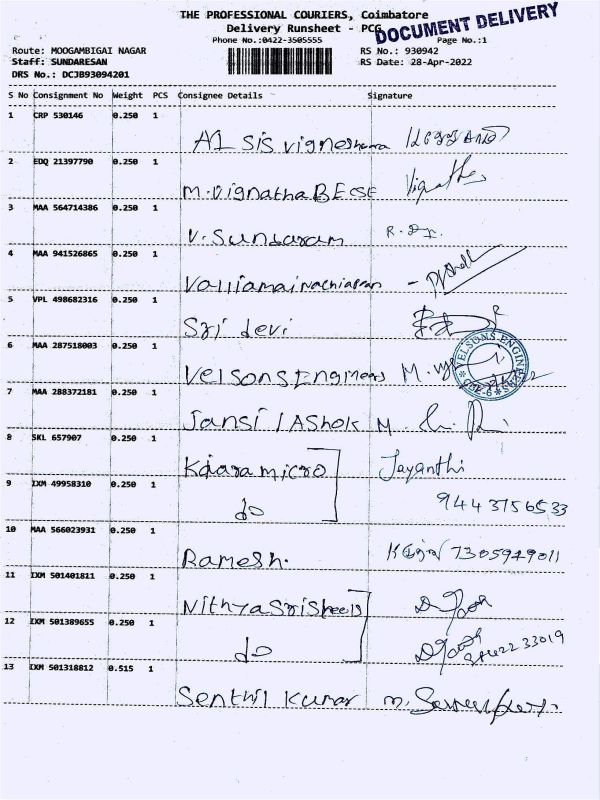 THE PROFESSIONAL COURIERS, Coimbatore
Delivery Runsheet - PCG
DOCUMENT DELIVERY
Phone No.:0422-3505555 Page No.:1
Route: MOOGAMBIGAI NAGAR RS No.: 930942
Staff: SUNDARESAN RS Date: 28-Apr-2022
DRS No.: DCJB93094201
S No Consignment No Weight PCS Consignee Details Signature
1 CRP 530146 0.250 1
A1 SIS Vigneshwara
2 EDQ 21397790 0.250 1
M. Vignatha BE CSE Vignathes
3 MAA 564714386 0.250 1
V. Sundaram
4 MAA 941526865 0.250 1
Valliamai Nachiappan
5 VPL 498682316 0.250 1
Sri devi
6 MAA 287518003 0.250 1
Velsons Engineers M.
VELSONS ENGINEERS
CBE-6
7 MAA 288372181 0.250 1
Jansi / Ashok M
8 SKL 657907 0.250 1
Kaara micro Jayanthi
9 IXM 49958310 0.250 1
do 9443756533
10 MAA 566023931 0.250 1
Ramesh. 7305949011
11 IXM 501401811 0.250 1
Nithya Sri Sheels
12 IXM 501389655 0.250 1
do
13 IXM 501318812 0.515 1
Senthil Kumar